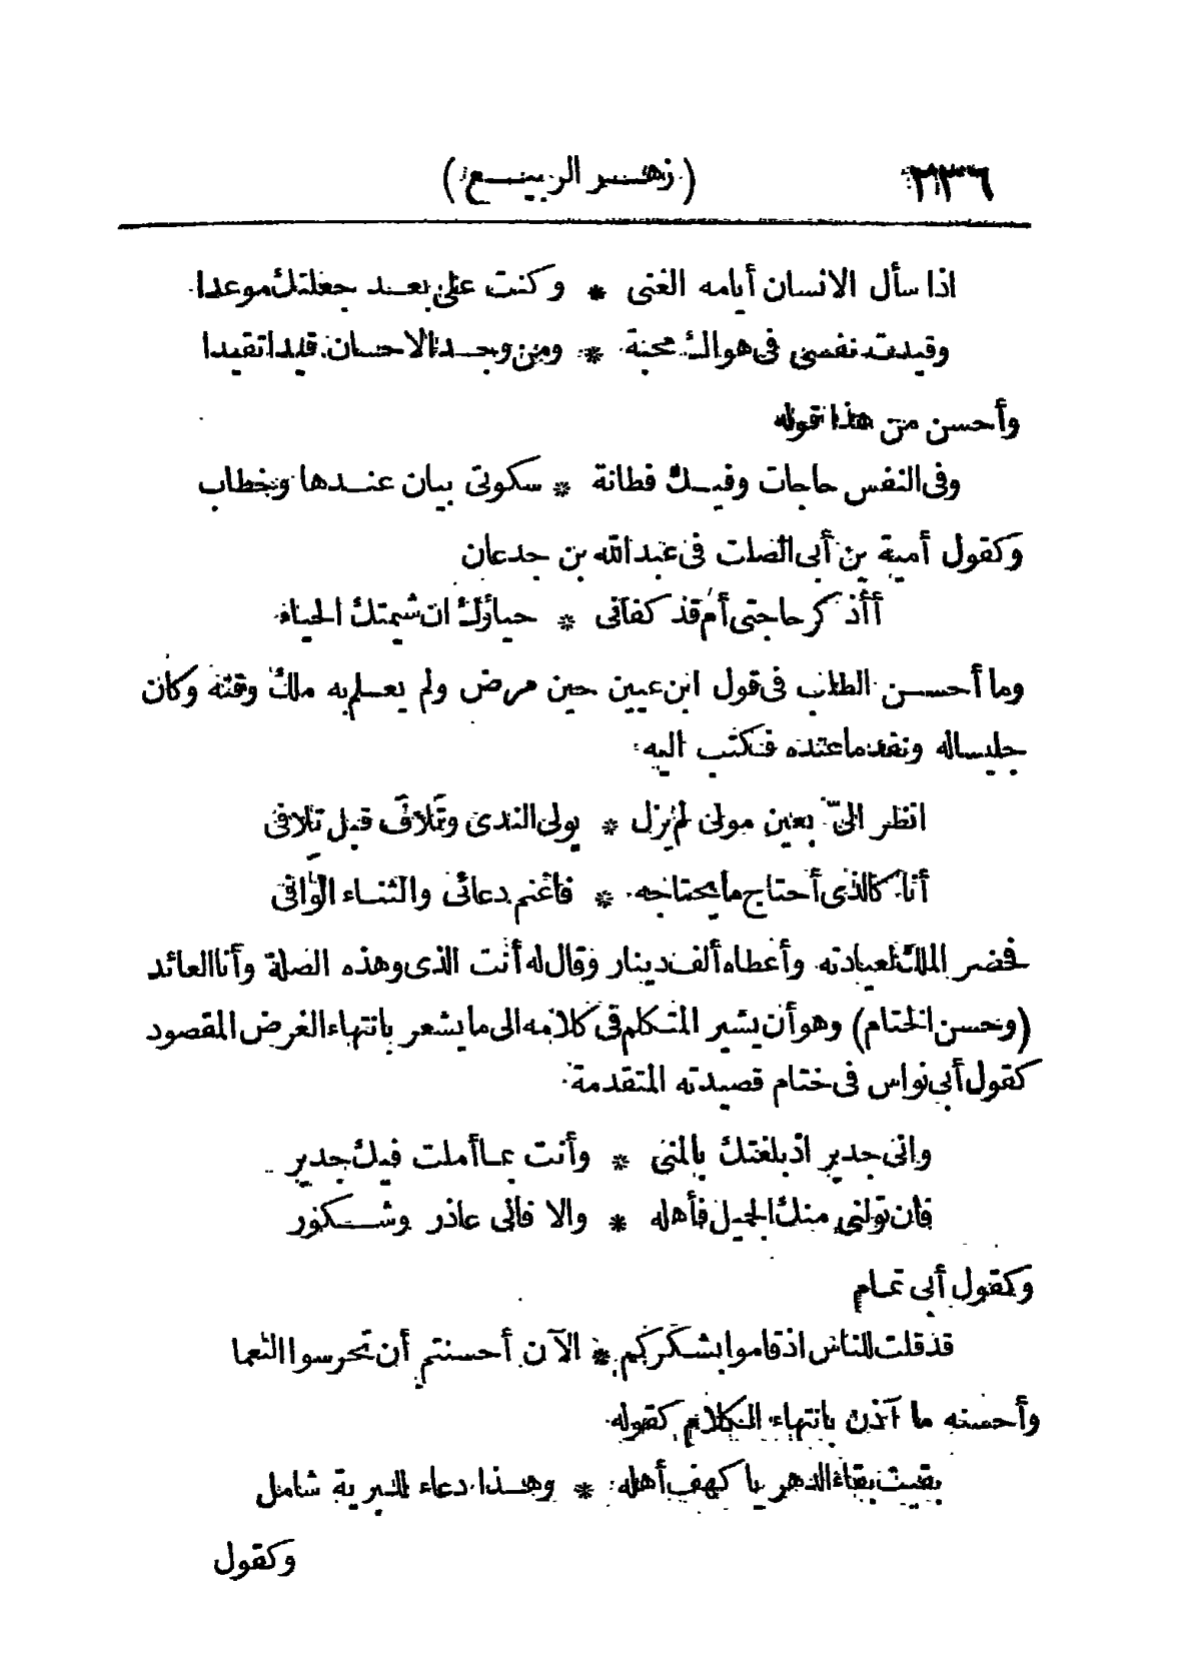 ٢٣٦
(زهر الربيع)
اذا سأل الانسان أيامه الغنى * وكنت على بعد جعلتك موعدا
وقيدت نفسى فى هواك محبة * ومن وجد الاحسان قيدا تقيدا
وأحسن من هذا قوله
وفى النفس حاجات وفيك فطانة * سكوتى بيان عندها وخطاب
وكقول أمية بن أبى الصلت فى عبد الله بن جدعان
أأذكر حاجتى أم قد كفانى * حياؤك ان شيمتك الحياء
وما أحسن الطلب فى قول ابن عيين حين مرض ولم يعلم به ملك وقته وكان
جليسا له ونفد ما عنده فكتب اليه
انظر الىّ بعين مولى لم يزل * يولى الندى وتَلافَ قبل تلافى
أنا كالذى أحتاج ما يحتاجه * فاغنم دعائى والثناء الوافى
فحضر الملك لعيادته وأعطاه ألف دينار وقال له أنت الذى وهذه الصلة وأنا العائد
(وحسن الختام) وهو أن يشير المتكلم فى كلامه الى ما يشعر بانتهاء الغرض المقصود
كقول أبى نواس فى ختام قصيدته المتقدمة
وانى جدير اذ بلغتك بالمنى * وأنت بما أملت فيك جدير
فان تولنى منك الجميل فأهله * والا فانى عاذر وشكور
وكقول أبى تمام
قد قلت للناس اذ قاموا بشكركم * الآن أحسنتم أن تحرسوا النعما
وأحسنه ما آذن بانتهاء الكلام كقوله
بقيت بقاء الدهر يا كهف أهله * وهذا دعاء للبرية شامل
وكقول